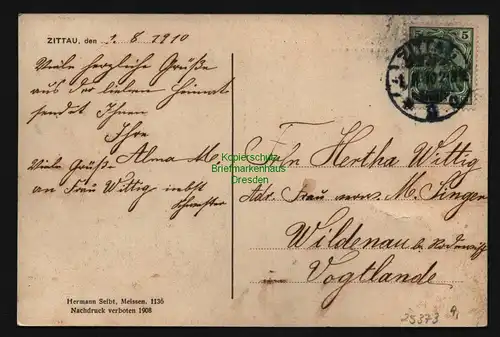 ZITTAU, den 1. 8. 1910
Viele herzliche Grüße
aus der lieben Heimat
sendet Ihnen
Ihre
Alma
Viele Grüße
an Frau Wittig nebst
Schwester
Frln Hertha Wittig
Adr. Frau verw. M. Singer
Wildenau b. Rodewisch
im Vogtlande
5 5
ZITTAU
Kopierschutz
Briefmarkenhaus
Dresden
Hermann Seibt, Meissen. 1136
Nachdruck verboten 1908
25373